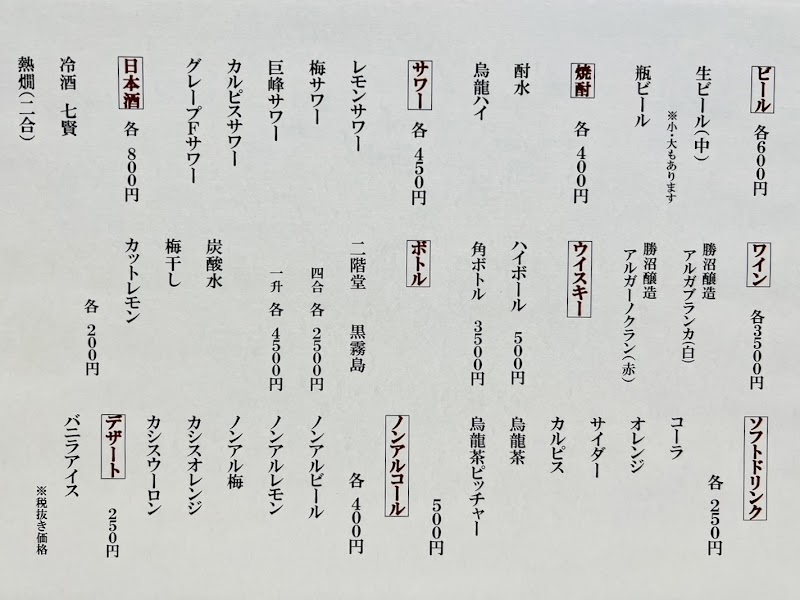 ビール 各600円
生ビール(中)
※小・大もあります
瓶ビール
焼酎 各 400円
酎水
烏龍ハイ
サワー 各 450円
レモンサワー
梅サワー
巨峰サワー
カルピスサワー
グレープFサワー
日本酒 各 800円
冷酒 七賢
熱燗(二合)
ワイン 各3500円
勝沼醸造
アルガブランカ(白)
勝沼醸造
アルガーノクラン(赤)
ウイスキー
ハイボール 500円
角ボトル 3500円
ボトル
二階堂 黒霧島
四合 各 2500円
一升 各 4500円
炭酸水
梅干し
カットレモン
各 200円
ソフトドリンク
各 250円
コーラ
オレンジ
サイダー
カルピス
烏龍茶
烏龍茶ピッチャー
500円
ノンアルコール
各 400円
ノンアルビール
ノンアルレモン
ノンアル梅
カシスオレンジ
カシスウーロン
デザート 250円
バニラアイス
※税抜き価格